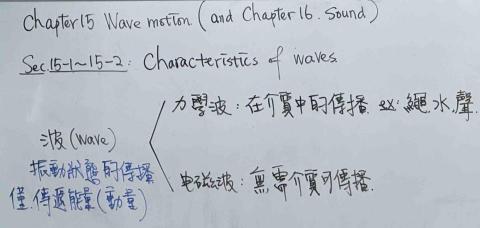 Chapter15 Wave motion (and Chapter16. Sound)
Sec.15-1~15-2: Characteristics of waves.
力學波:在介質中的傳播. ex: 繩.水.聲.
波(wave)
振動狀態的傳播
僅.傳遞能量(動量)
电磁波:無需介質可傳播.